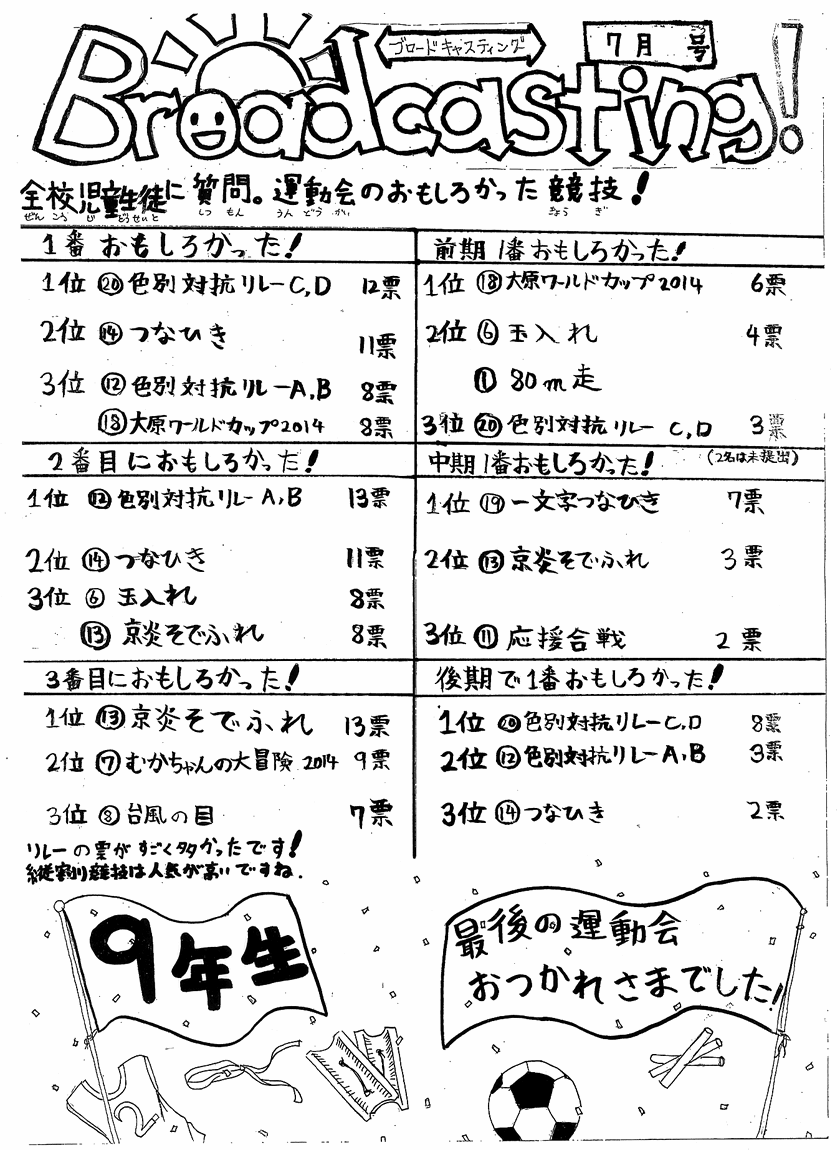 Broadcasting!
ブロードキャスティング
7月号
全校児童生徒に質問。運動会のおもしろかった競技!
ぜん こう じ どうせいと しつ もん うん どう かい きょう ぎ
1番おもしろかった!
1位 ⑳色別対抗リレーC,D 12票
2位 ⑭つなひき 11票
3位 ⑫色別対抗リレーA,B 8票
⑱大原ワールドカップ2014 8票
前期1番おもしろかった!
1位 ⑱大原ワールドカップ2014 6票
2位 ⑥玉入れ 4票
① 80m走
3位 ⑳色別対抗リレー C,D 3票
2番目におもしろかった!
1位 ⑫色別対抗リレーA,B 13票
2位 ⑭つなひき 11票
3位 ⑥ 玉入れ 8票
⑬ 京炎そでふれ 8票
中期1番おもしろかった! (2名は未提出)
1位 ⑲一文字つなひき 7票
2位 ⑬京炎そでふれ 3票
3位 ⑪応援合戦 2票
3番目におもしろかった!
1位 ⑬京炎そでふれ 13票
2位 ⑦むかちゃんの大冒険2014 9票
3位 ⑧台風の目 7票
後期で1番おもしろかった!
1位 ⑳色別対抗リレーC,D 8票
2位 ⑫色別対抗リレーA,B 3票
3位 ⑭つなひき 2票
リレーの票がすごく多かったです!
縦割り競技は人気が高いですね.
9年生
最後の運動会
おつかれさまでした!
2